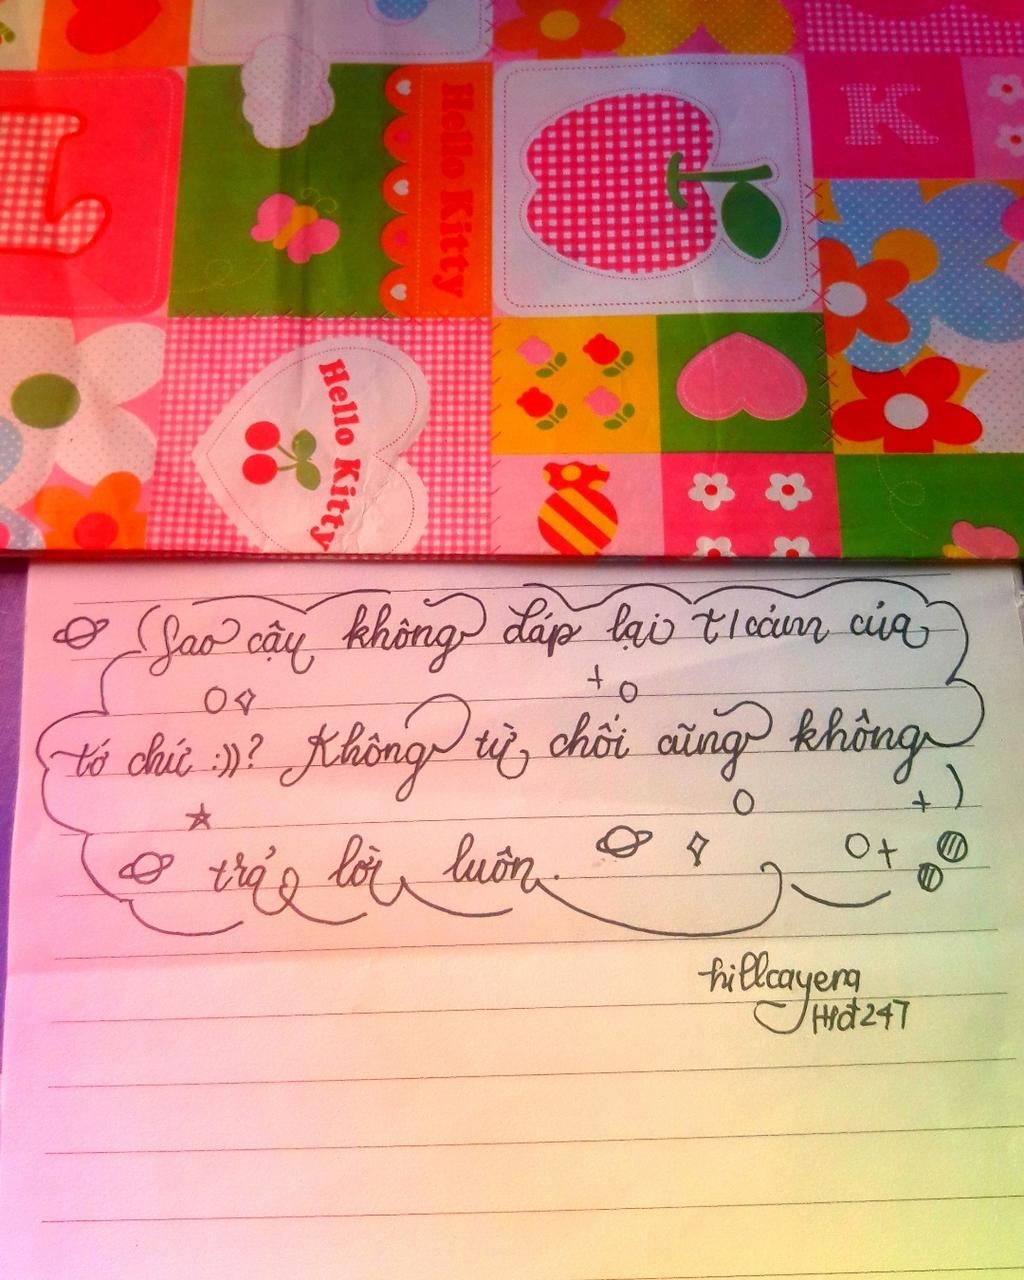 L
Hello Kitty
K
Hello Kitty
Sao cậu không đáp lại t/cảm của
tớ chứ :))? Không từ chối cũng không
trả lời luôn.
hillcayera
Hđ247